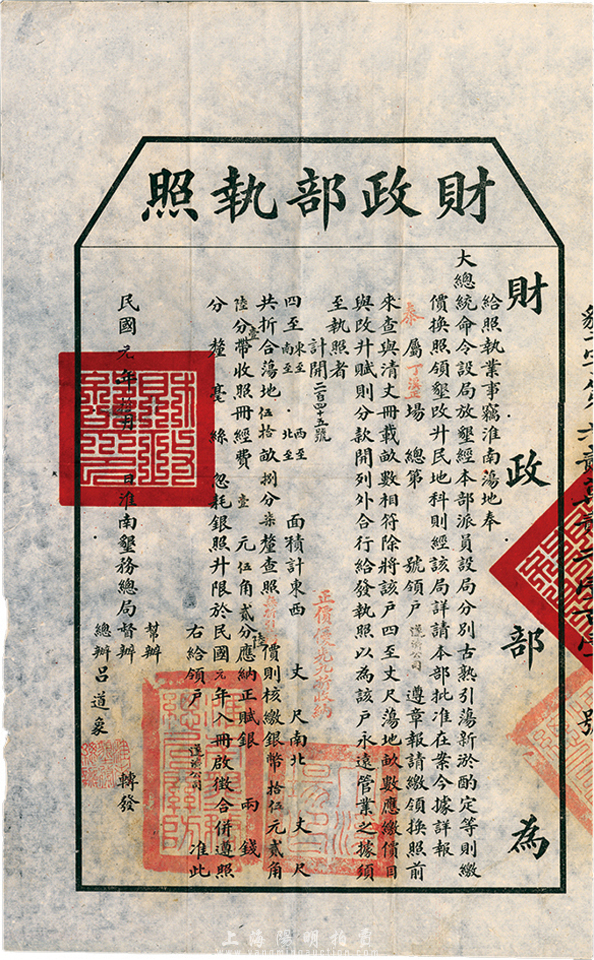 財政部執照
財政部為
給照執業事竊淮南蕩地奉
大總統命令設局放墾經本部派員設局分別古熟引蕩新淤酌定等則繳
價換照領墾改升民地科則經該局詳請本部批准在案今據詳報
泰屬丁溪場總第 號領戶遂濟公司遵章報請繳領換照前
來查與清丈冊載畝數相符除將該戶四至丈尺蕩地畝數應繳價目
與改升賦則分款開列外合行給發執照以為該戶永遠管業之據須
至執照者
計開二百四十五號
四至東至 西至 南至 北至 面積計東西 丈 尺南北 丈 尺
共折合蕩地伍拾壹畝捌分柒釐查照 價則核繳銀幣拾伍元貳角
陸分帶收照冊經費壹元伍角貳分應納正賦銀 兩 錢
分釐毫絲忽耗銀照升限於民國陸元年入冊啟徵合併遵照
右給領戶遂濟公司准此
正價優先先將繳納
民國元年 月 日淮南墾務總局督辦
幫辦
總辦呂道象 轉發
號
上海陽明拍賣